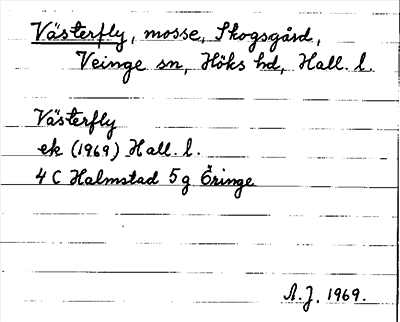 Västerfly, mosse, Skogsgård,
Veinge sn, Höks hd, Hall. l.
Västerfly
ek (1969) Hall. l.
4 C Halmstad 5 g Öringe
A.J. 1969.